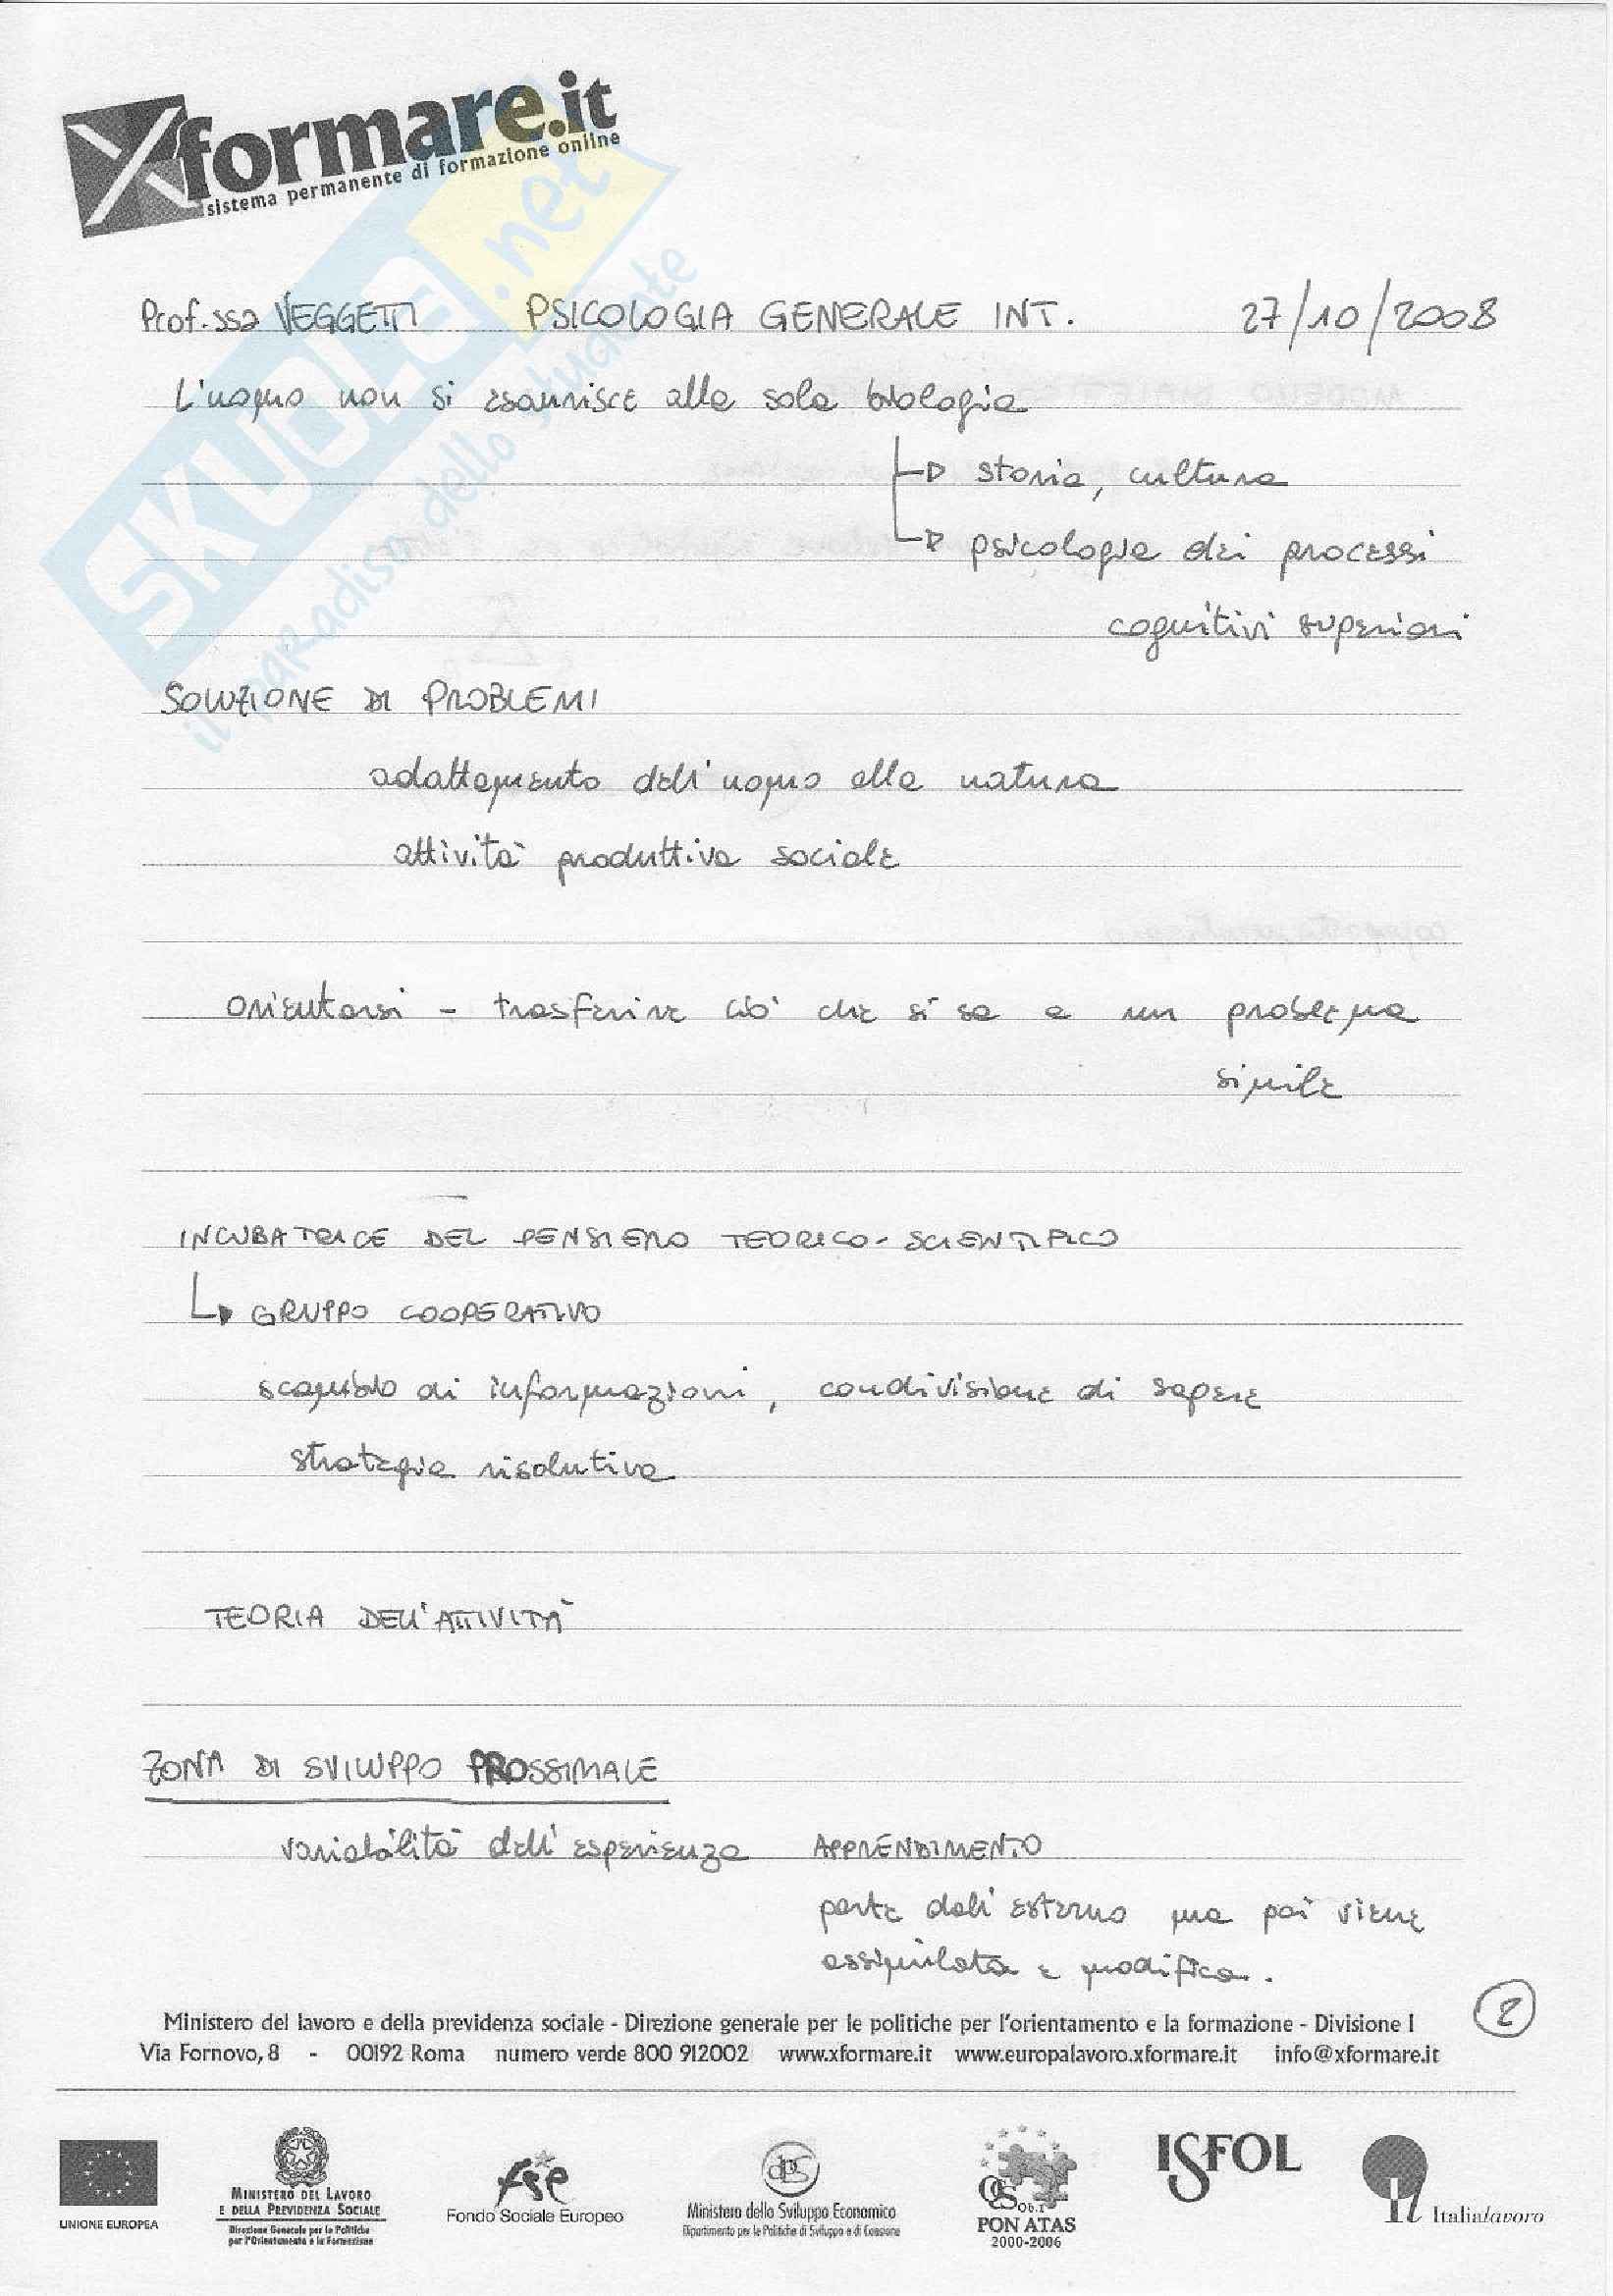 Xformare.it
sistema permanente di formazione online
SKUOLA.net
il paradiso dello studente
Prof.ssa VEGGETTI PSICOLOGIA GENERALE INT. 27/10/2008
L'uomo non si esaurisce alla sola biologia
storia, cultura
psicologia dei processi
cognitivi superiori
SOLUZIONE DI PROBLEMI
adattamento dell'uomo alla natura
attività produttiva sociale
orientarsi - trasferire ciò che si sa a un problema
simile
INCUBATRICE DEL PENSIERO TEORICO-SCIENTIFICO
GRUPPO COOPERATIVO
scambio di informazioni, condivisione di sapere
strategia risolutiva
TEORIA DELL'ATTIVITÀ
ZONA DI SVILUPPO PROSSIMALE
variabilità dell'esperienza APPRENDIMENTO
parte dall'esterno ma poi viene
assimilata e modifica.
2
Ministero del lavoro e della previdenza sociale - Direzione generale per le politiche per l'orientamento e la formazione - Divisione I
Via Fornovo, 8 - 00192 Roma numero verde 800 912002 www.xformare.it www.europalavoro.xformare.it info@xformare.it
UNIONE EUROPEA
MINISTERO DEL LAVORO
E DELLA PREVIDENZA SOCIALE
Direzione Generale per le Politiche
per l'Orientamento e la Formazione
fse
Fondo Sociale Europeo
dps
Ministero dello Sviluppo Economico
Dipartimento per le Politiche di Sviluppo e di Coesione
QCS Ob.1
PON ATAS
2000-2006
ISFOL
Italialavoro